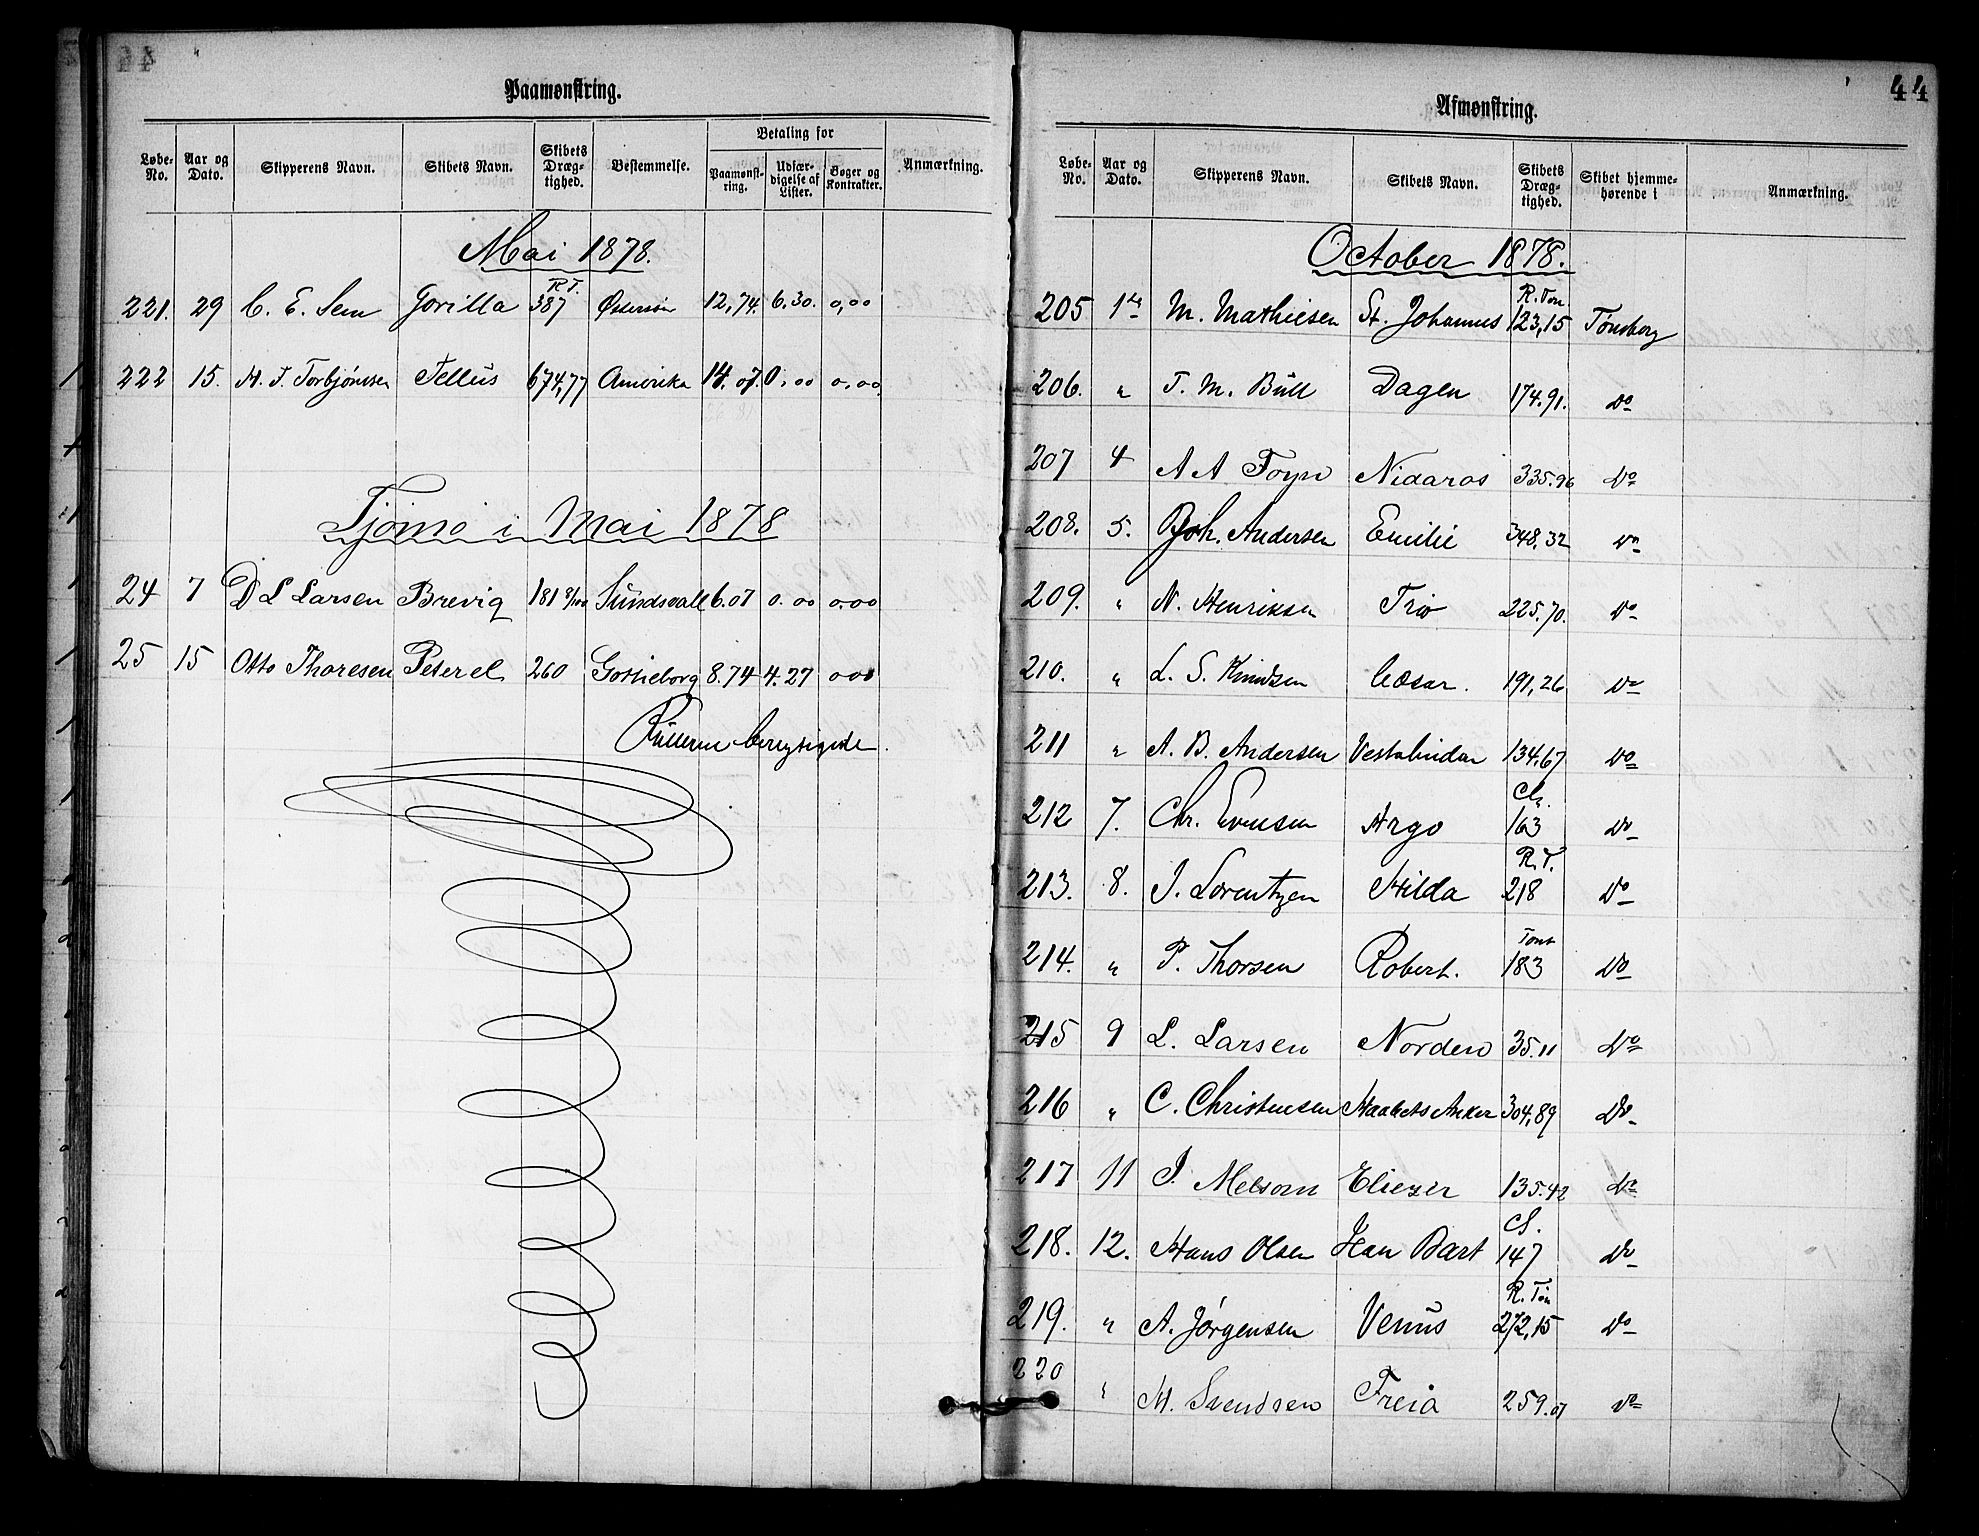 Paamønstring.
Løbe-No. Aar og Dato. Skipperens Navn. Skibets Navn. Skibets Dræg-tighed. Bestemmelse. Betaling for Paamønst-ring. Udfær-digelse af Lister. Bøger og Kontrakter. Anmærkning.
Mai 1878.
R T.
221. 29 C. E. Sem Gorilla 387 Østersøn 12,74. 6.30. 0,00
222 15. H. T. Torbjörnsen Tellus 674,77 Amerika 14.07. 0,00 0,00
Tjömö i Mai 1878
24 7 D L Larsen Brevig 181 Sundsvall 6.07 0.00 0,00
25 15 Otto Thoresen Peterel 260 Gottieborg 8.74 4.27 000
44
Afmønstring.
Løbe-No. Aar og Dato. Skipperens Navn. Skibets Navn. Skibets Dræg-tighed. Skibet hjemme-hørende i Anmærkning.
October 1878.
R. Ton.
205 1ste M. Mathiesen St. Johannes 123,15 Tønsberg
206. " T. M. Büll Dagen 174.91. Do
207 4 A A Foyn Nidaros 335.96 Do
208. 5. Joh. Andersen Emilie 348,32 Do
209. " N. Henriksen Trio 225.70. Do
210. " L. S. Knudsen Cæsar. 191,26 Do
211 " A. B. Andersen Vestalinden 134.67 Do
Cl.
212 7. Chr. Evensen Argo 163 Do
R. T.
213. 8. J. Lorentzen Hilda 218 Do
Tons
214. " P. Thorsen Robert. 183 Do
215 9 L. Larsen Norden 35.11 Do
216 " C. Christensen Haabets Anker 304,89 Do
217 11 J. Melsom Eliezer 135.42 Do
Cl.
218. 12. Hans Olsen Jean Bart 147 Do
R. Ton
219. " A. Jørgensen Venüs 272,15 Do
220 " M. Svendsen Freia 259.07 Do